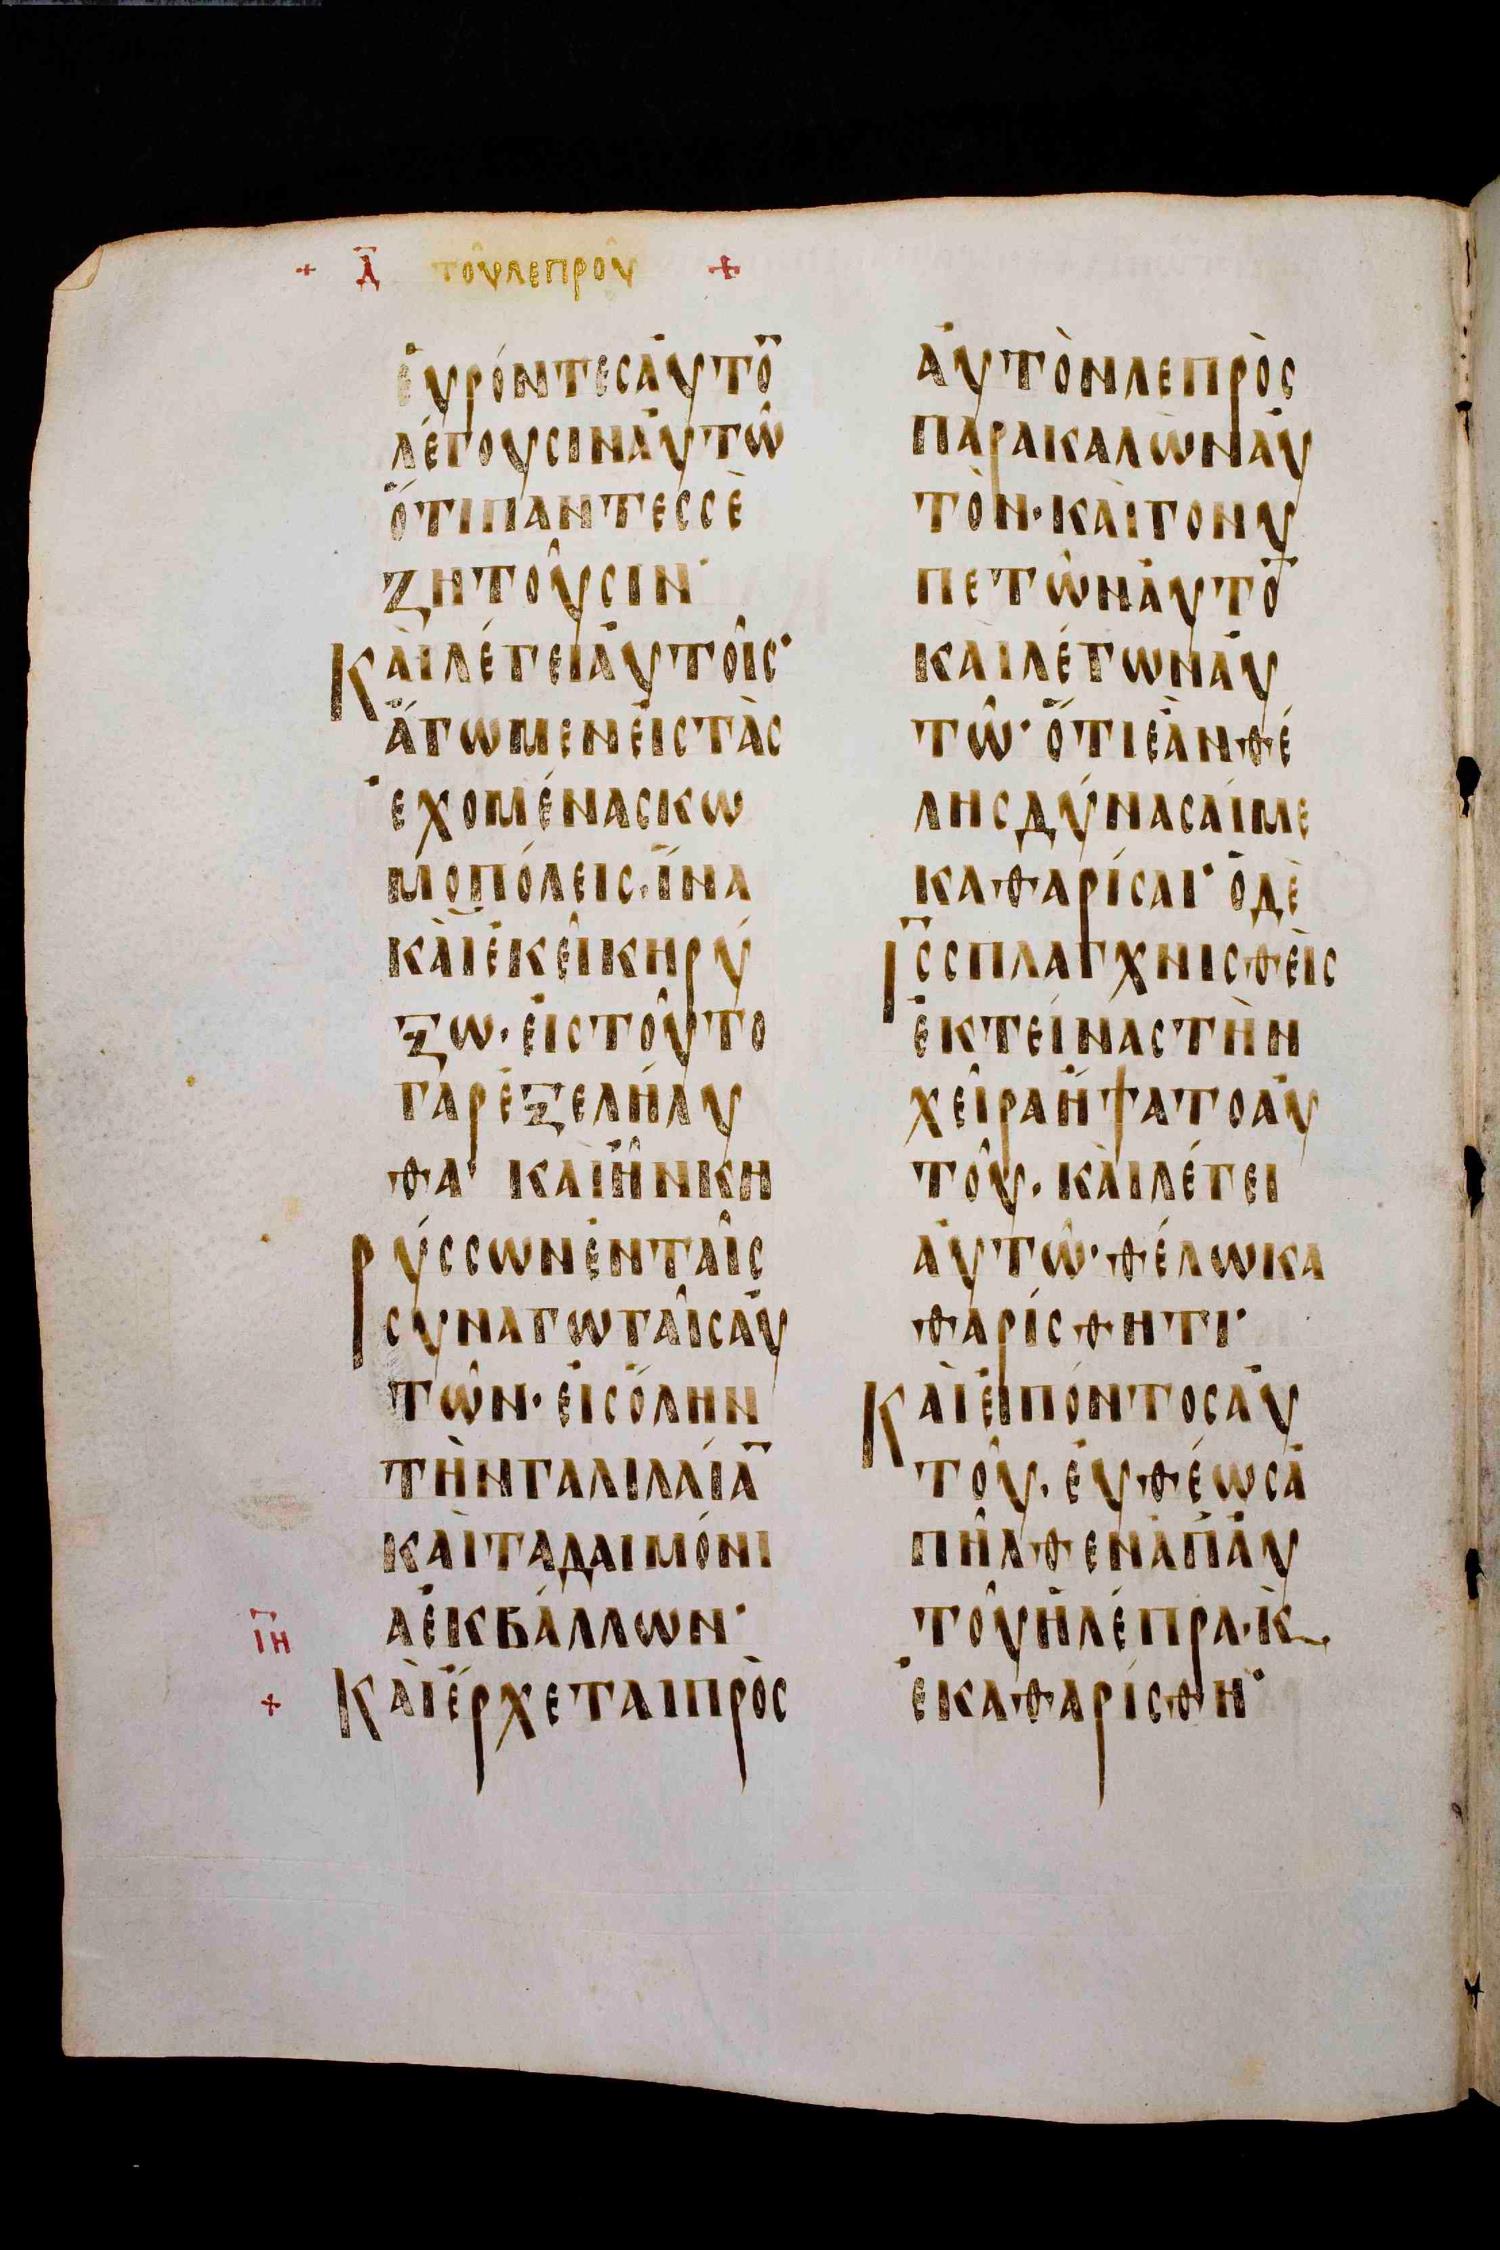 + Δ̅ τοῦλεπροῦ +
ἐυρόντεσἀυτο̅
λέγουσιναὐτῶ
ὅτιπαντεσσὲ
ζητοῦσιν·
Κὰιλέγειἀυτοῖσ·
ἄγωμενἐιστὰσ
ἐχομένασκω
μοπόλεισ·ἵνα
κὰἰἐκεῖκηρύ
ξω·ἐιστοῦτο
γαρἐξελήλυ
θα· καὶἦνκη
ρύσσωνἐνταῖσ
συναγωγαῖσἀυ
τῶν·ἐισὅλην
τὴνγαλιλαία̅
κὰιταδαιμόνι
αἐκβάλλων·
Κὰιἔρχεταιπρὸσ
ι̅η̅
+
ἀυτὸνλεπρὸσ
παρακαλῶναὐ
τὸν·κὰιγονυ
πετῶνἀυτο̅
καιλέγωναὐ
τῶ· ὅτιἐὰνθέ
λησδύνασαίμε
καθαρίσαι· ὁδὲ
Ι̅σ̅σπλαγχνισθεὶσ
ἐκτείναστὴν
χεῖραἥψατοἀυ
τοῦ·κὰιλέγει
ἀυτῶ·θέλωκα
θαρίσθητι·
Κὰιἐιπόντοσἀυ
τοῦ·ἐυθέωσἀ
πῆλθεναπ̓ἀυ
τοῦἡλέπρα·κ̀
ἐκαθαρίσθη·